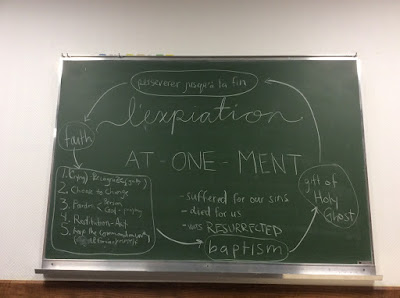 perseverer jusqu'à la fin
l'expiation
faith
AT-ONE-MENT
1. Recognize
2. Choose to Change
3. Pardon Person God - praying
4. Restitution - Act
5. keep the commandments
- suffered for our sins
- died for us
- was RESURRECTED
baptism
gift of
Holy
Ghost